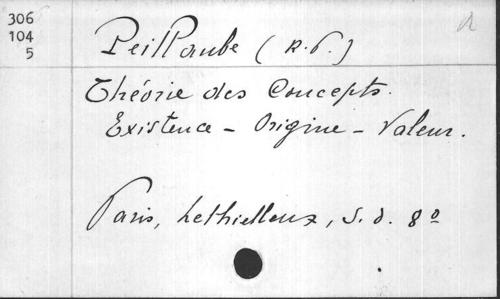 306
104
5
Peillaube (R. P.)
Théorie des Concepts.
Existence - Origine - Valeur.
Paris, Lethielleux, S. d. 8º